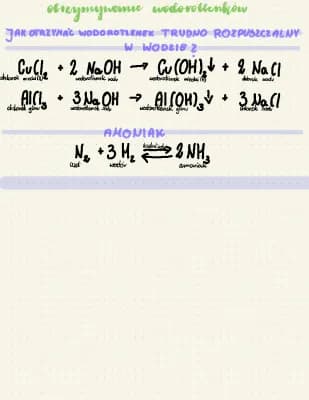 otrzymywanie wodorotlenków
JAK OTRZYMAĆ WODOROTLENEK TRUDNO ROZPUSZCZALNY
W WODZIE?
CuCl₂ + 2 NaOH → Cu(OH)₂↓ + 2 NaCl
chlorek miedzi(II) wodorotlenek sodu wodorotlenek miedzi(II) chlorek sodu
AlCl₃ + 3 NaOH → Al(OH)₃↓ + 3 NaCl
chlorek glinu wodorotlenek sodu wodorotlenek glinu chlorek sodu
AMONIAK
N₂ + 3 H₂ ⇌ 2 NH₃
azot wodór amoniak